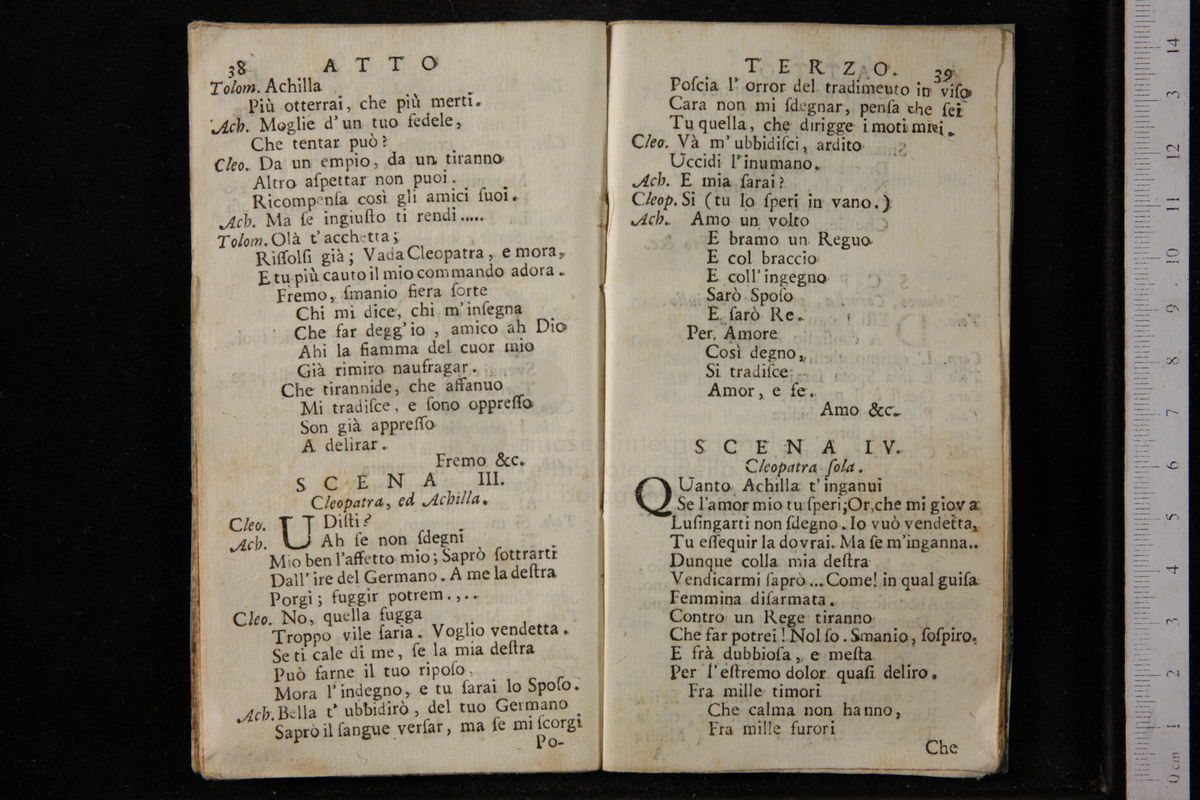 38 ATTO
Tolom. Achilla
Più otterrai, che più merti.
Ach. Moglie d'un tuo fedele,
Che tentar può?
Cleo. Da un empio, da un tiranno
Altro aſpettar non puoi.
Ricompenſa così gli amici ſuoi.
Ach. Ma ſe ingiuſto ti rendi.....
Tolom. Olà t'acchetta;
Riſſolſi già; Vada Cleopatra, e mora,
E tu più cauto il mio commando adora.
Fremo, ſmanio fiera ſorte
Chi mi dice, chi m'inſegna
Che far degg'io, amico ah Dio
Ahi la fiamma del cuor mio
Già rimiro naufragar.
Che tirannide, che affanuo
Mi tradiſce, e ſono oppreſſo
Son già appreſſo
A delirar.
Fremo &c.
SCENA III.
Cleopatra, ed Achilla.
Cleo. UDiſti?
Ach. Ah ſe non ſdegni
Mio ben l'affetto mio; Saprò ſottrarti
Dall'ire del Germano. A me la deſtra
Porgi; fuggir potrem.,..
Cleo. No, quella fugga
Troppo vile ſaria. Voglio vendetta.
Se ti cale di me, ſe la mia deſtra
Può farne il tuo ripoſo,
Mora l'indegno, e tu ſarai lo Spoſo.
Ach. Bella t'ubbidirò, del tuo Germano
Saprò il ſangue verſar, ma ſe mi ſcorgi
Po-
TERZO. 39
Poſcia l'orror del tradimeuto in viſo
Cara non mi ſdegnar, penſa che ſei
Tu quella, che dirigge i moti miei.
Cleo. Và m'ubbidiſci, ardito
Uccidi l'inumano.
Ach. E mia ſarai?
Cleop. Si (tu lo ſperi in vano.)
Ach. Amo un volto
E bramo un Reguo
E col braccio
E coll'ingegno
Sarò Spoſo
E ſarò Re.
Per Amore
Così degno,
Si tradiſce
Amor, e fe.
Amo &c.
SCENA IV.
Cleopatra ſola.
QUanto Achilla t'inganui
Se l'amor mio tu ſperi; Or, che mi giova
Luſingarti non ſdegno. Io vuò vendetta,
Tu eſſequir la dovrai. Ma ſe m'inganna..
Dunque colla mia deſtra
Vendicarmi ſaprò... Come! in qual guiſa
Femmina diſarmata.
Contro un Rege tiranno
Che far potrei! Nol ſo. Smanio, ſoſpiro,
E frà dubbioſa, e meſta
Per l'eſtremo dolor quaſi deliro.
Fra mille timori
Che calma non hanno,
Fra mille furori
Che